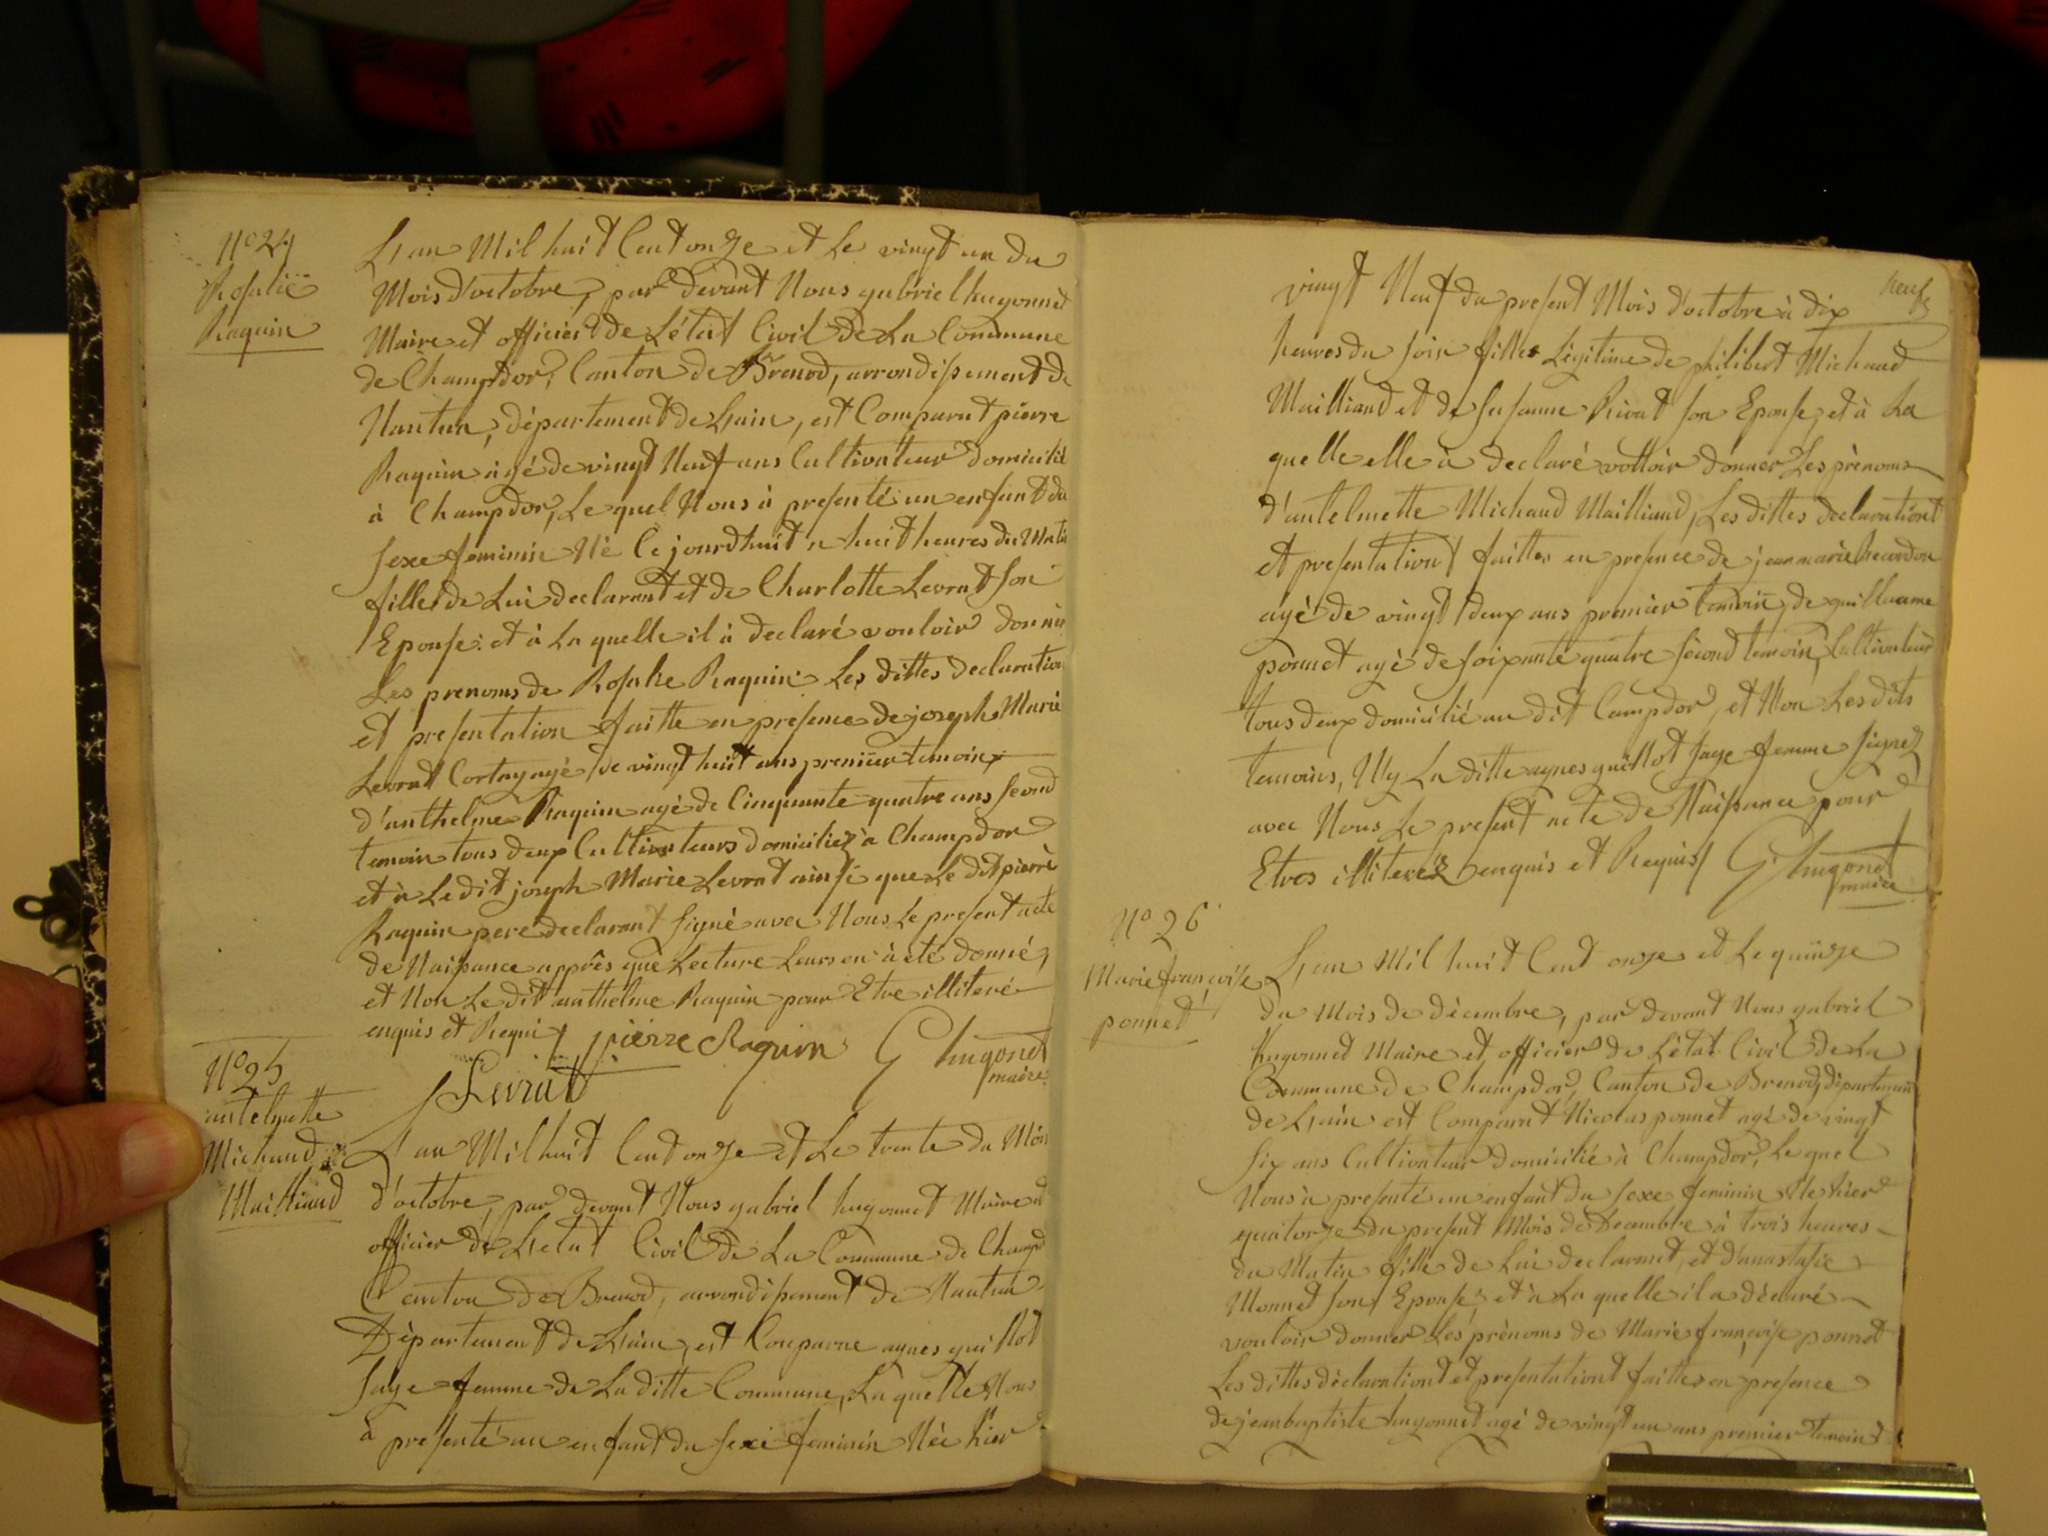 N° 24
Rosalie
Raquin
L'an Mil huit Cent onze et Le vingt un du
Mois d'octobre, par devant Nous gabriel hugonnet
Maire et officier de L'état Civil de La Commune
de Champdor, Canton de Brenod, arrondissement de
Nantua, département de L'ain, est Comparut pierre
Raquin agé de vingt Neuf ans Cultivateur domicilié
à Champdor, Le quel Nous à presenté un enfant du
sexe feminin Né Ce jourdhuit a huit heures du Matin
fille de Lui declarant et de Charlotte Levrat son
Epouse: et à La quelle il à declaré vouloir donner
Les prenoms de Rosalie Raquin Les dittes declaration
et presentation faitte en presence de joseph Marie
Levrat Cortay agé de vingt huit ans premier temoin
d'anthelme Raquin agé de Cinquante quatre ans second
temoin tous deux Cultivateurs domiciliez à Champdor
et à Le dit joseph Marie Levrat ainsi que Le dit pierre
Raquin pere declarant signé avec Nous Le present acte
de Naissance apprês que Lecture Leurs en à été donné,
et Non Le dit anthelme Raquin pour Etre illiteré
enquis et Requis pierre Raquin G hugonet
maire
Levrat
N° 25
antelmette
Michaud
Mailliand
L'an Mil huit Cent onze et Le trente du Mois
d'octobre, par devant Nous gabriel hugonnet Maire et
officier de L'etat Civil de La Commune de Champd
Canton de Brenod, arrondissement de Nantua
Département de L'ain, est Comparue agnes guillot
sage femme de La ditte Commune, La quelle Nous
à presenté un enfant du sexe feminin Née hier
neuf
vingt Neuf du present Mois d'octobre à dix
heures du soir fille Légitime de philibert Michaud
Mailliand et de susanne Rivat son Epouse, et à La
quelle elle à declaré vottoir donner Les prènoms
d'antelmette Michaud Mailliand, Les dittes declarationt
et presentationt faittes en presence de jean marie
agé de vingt deux ans premier temoin, de guillaume
ponnet agé de soixante quatre second temoin, Cultivateur
tous deux domicilié au dit Campdor, et Non Les dits
temoins, Ny La ditte agnes guillot sage femme signez
avec Nous Le present acte de Naissance pour
Etres illiterés enquis et Requis G hugonet
maire
N° 26
Marie françoise
ponnet
L'an Mil huit Cent onze et Le quinze
du Mois de décembre, par devant Nous gabriel
hugonnet Maire et officier de L'état Civil de La
Commune de Champdor, Canton de Brenod, département
de L'ain est Comparut Nicolas ponnet agé de vingt
six ans Cultivateur domicilié à Champdor, Le quel
Nous à presenté un enfant du sexe feminin Née hier
quatorze du present Mois de Decembre à trois heures
du Matin fille de Lui declarant, et d'anastasie
Monnet son Epouse, et à La quelle il a déclaré
vouloir donner Les prènoms de Marie françoise ponnet
Les dittes dèclarationt et presentationt faittes en presence
de jean baptiste hugonnet agé de vingt un ans premier temoint